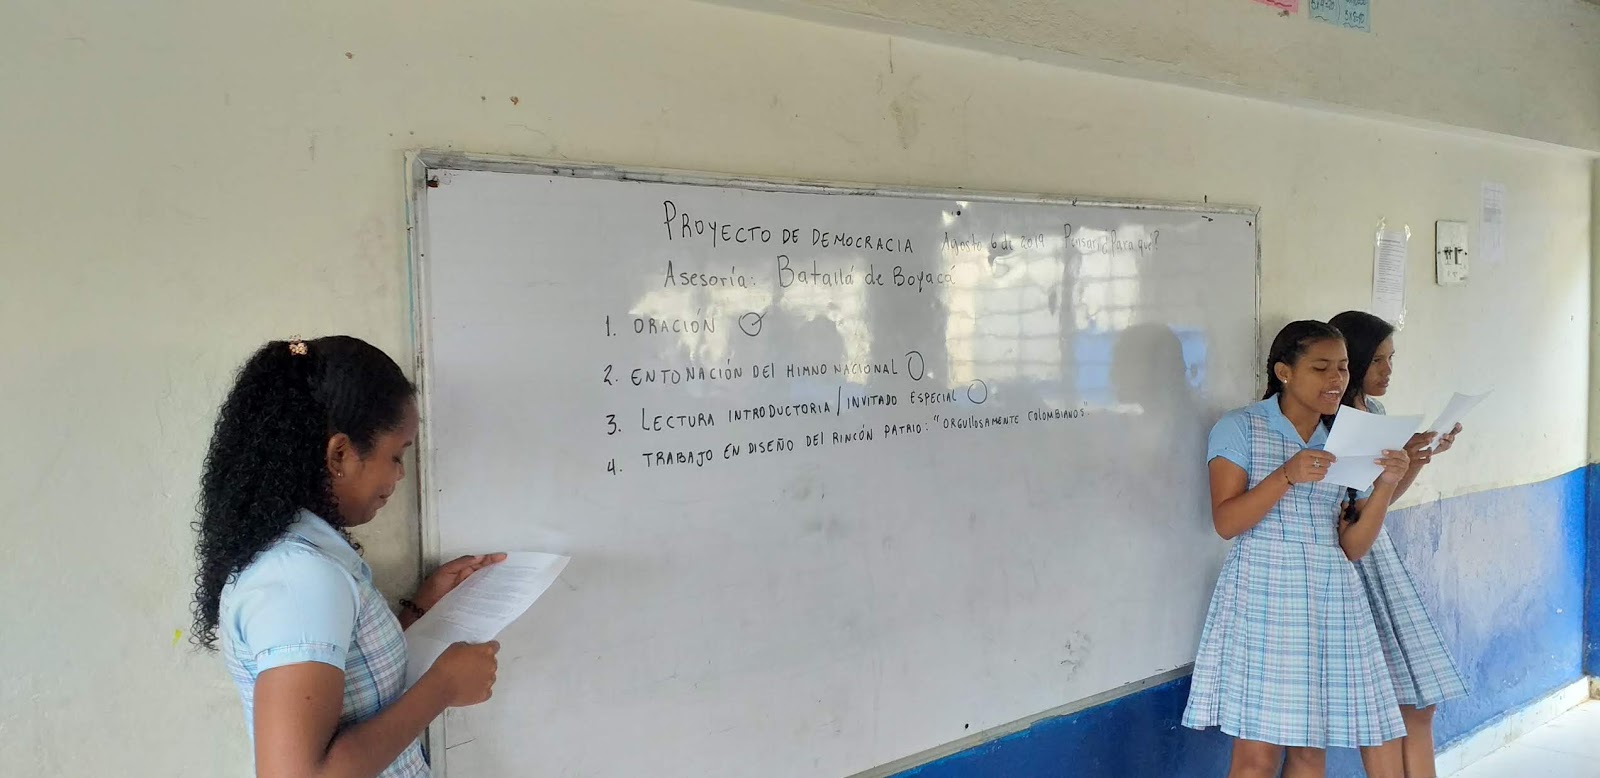 PROYECTO DE DEMOCRACIA Agosto 6 de 2019 Pensar ¿Para qué?
Asesoría: Batallá de Boyacá
1. ORACIÓN
2. ENTONACIÓN DEl HIMNO NACIONAL
3. LECTURA INTRODUCTORIA / INVITADO ESPECIAL
4. TRABAJO EN DISEÑO DEl RINCÓN PATRIO: "ORGUllOSAMENTE COlOMBIANOS".